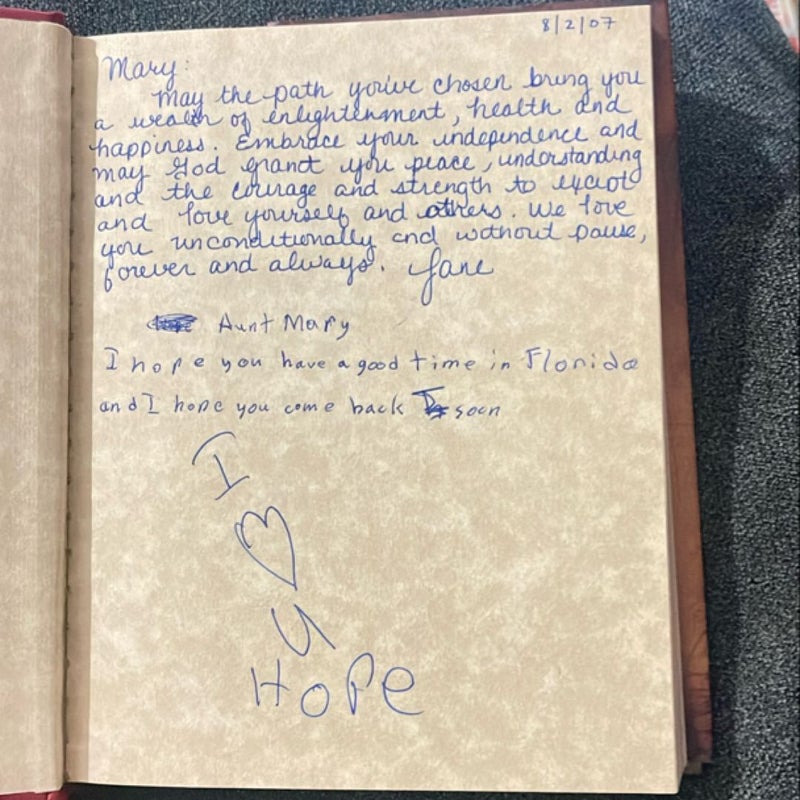 8/2/07
Mary:
May the path you've chosen bring you
a wealth of enlightenment, health and
happiness. Embrace your independence and
may God grant you peace, understanding
and the courage and strength to
and love yourself and others. We love
you unconditionally and without pause,
forever and always. Jane
Aunt Mary
I hope you have a good time in Florida
and I hope you come back soon
I
♡
U
HOPe